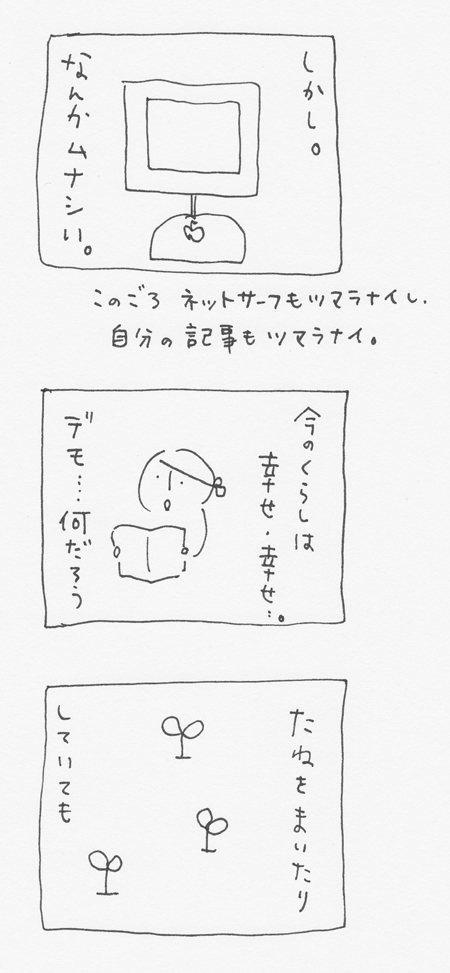 しかし。
なんかムナシい。
このごろ ネットサーフもツマラナイし、
自分の記事もツマラナイ。
今のくらしは
幸せ・幸せ…。
デモ…何だろう
たねをまいたり
していても